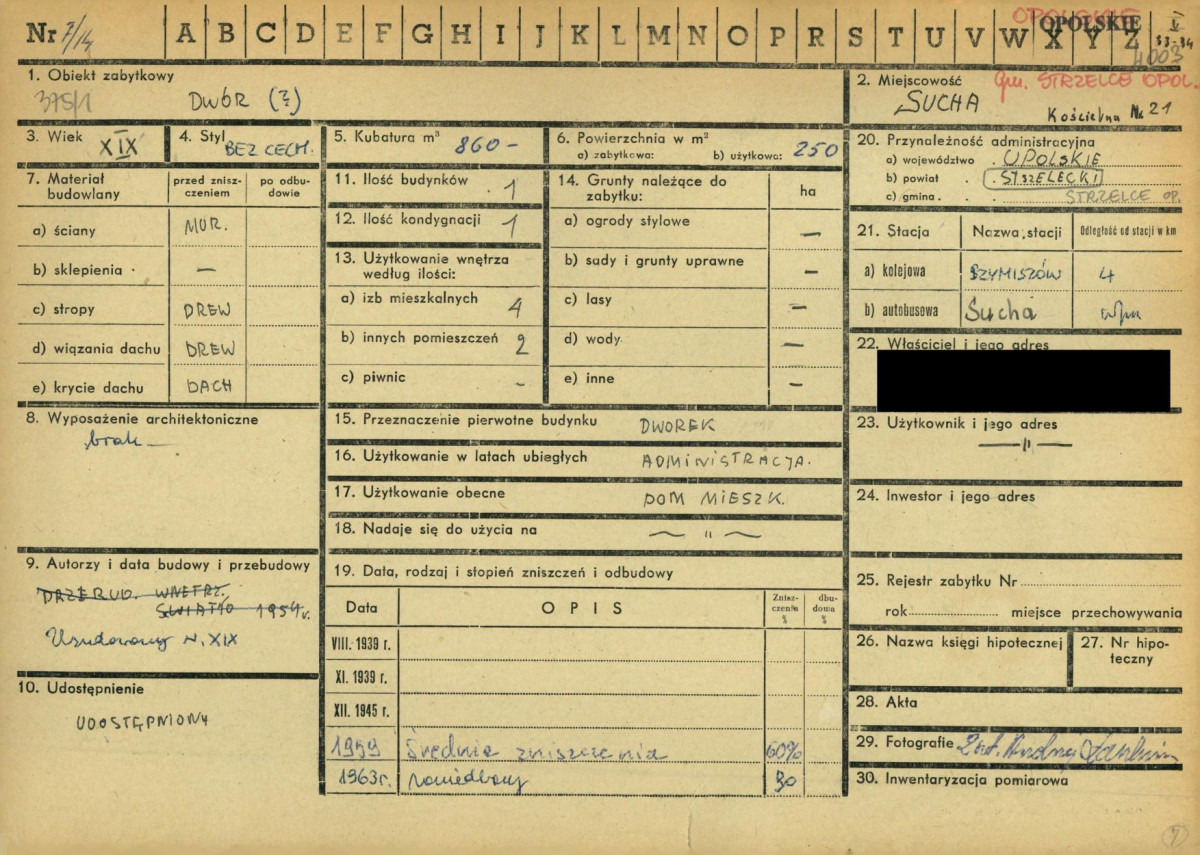 OPOLSKIE
Nr 7/14 A B C D E F G H I J K L M N O P R S T U V W X Y Z
OPOLSKIE
4003
1. Obiekt zabytkowy
375/1
DWÓR (?)
2. Miejscowość
Gm. STRZELCE OPOL.
SUCHA
Kościelna Nr 21
3. Wiek
XIX
4. Styl
BEZ CECH.
5. Kubatura m³ 860-
6. Powierzchnia w m²
a) zabytkowa: b) użytkowa: 250
7. Materiał budowlany
przed zniszczeniem
po odbudowie
a) ściany MUR.
b) sklepienia —
c) stropy DREW
d) wiązania dachu DREW
e) krycie dachu DACH
8. Wyposażenie architektoniczne
brak
9. Autorzy i data budowy i przebudowy
PRZEBUD. WNĘTRZ.
ŚWIATŁO 1954r.
XIX
10. Udostępnienie
UDOSTĘPNIONY
11. Ilość budynków 1
12. Ilość kondygnacji 1
13. Użytkowanie wnętrza
według ilości:
a) izb mieszkalnych 4
b) innych pomieszczeń 2
c) piwnic -
14. Grunty należące do
zabytku:
ha
a) ogrody stylowe —
b) sady i grunty uprawne —
c) lasy —
d) wody —
e) inne —
15. Przeznaczenie pierwotne budynku DWOREK
16. Użytkowanie w latach ubiegłych ADMINISTRACJA.
17. Użytkowanie obecne DOM MIESZK.
18. Nadaje się do użycia na — " —
19. Data, rodzaj i stopień zniszczeń i odbudowy
Data OPIS
Zniszczenia %
dbudowa %
VIII. 1939 r.
XI. 1939 r.
XII. 1945 r.
1959 Średnie zniszczenia 60%
1963r. zaniedbany 30
20. Przynależność administracyjna
a) województwo OPOLSKIE
b) powiat STRZELECKI
c) gmina STRZELCE OP.
21. Stacja
Nazwa stacji
Odległość od stacji w km
a) kolejowa SZYMISZÓW 4
b) autobusowa Sucha
22. Właściciel i jego adres
23. Użytkownik i jego adres
— " —
24. Inwestor i jego adres
25. Rejestr zabytku Nr
rok miejsce przechowywania
26. Nazwa księgi hipotecznej
27. Nr hipoteczny
28. Akta
29. Fotografie
30. Inwentaryzacja pomiarowa